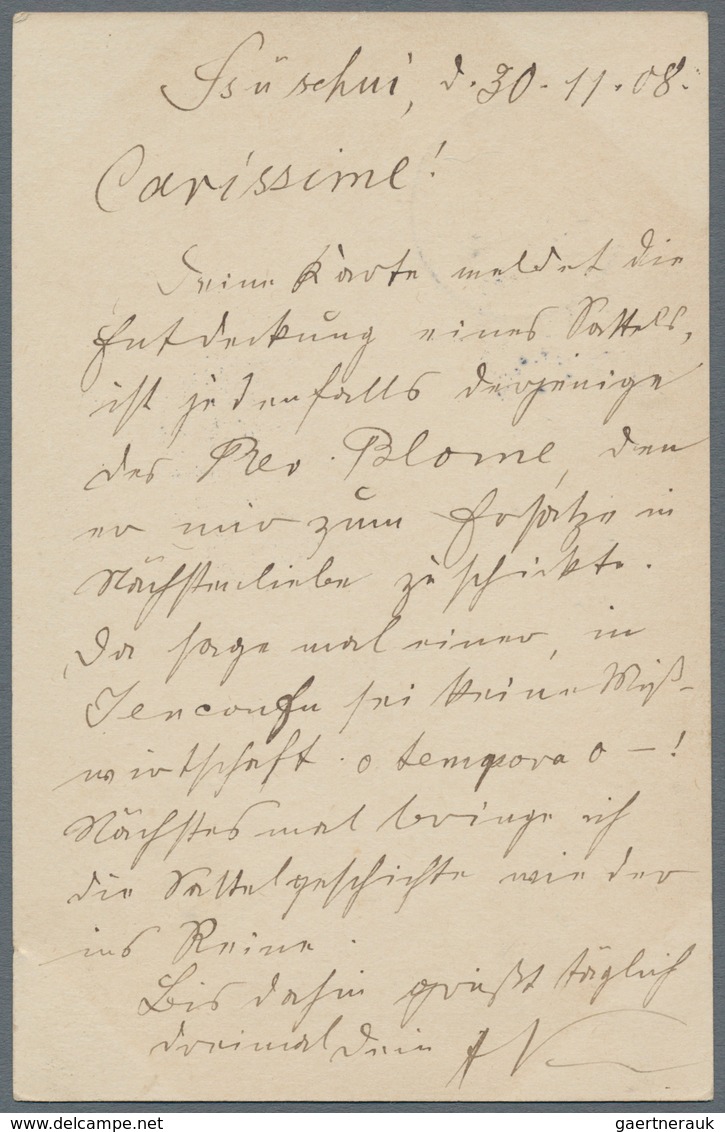 Tsüschui, d. 30.11.08.
Carissime!
Deine Karte meldet die
Entdeckung eines Sattels,
ist jedenfalls derjenige
des Rev. Blome, den
er mir zum Ersatze in
Nächstenliebe zuschickte.
Da sage mal einer, in
Yenconfu sei keine Miß-
wirtschaft. o tempora o – !
Nächstesmal bringe ich
die Sattelgeschichte wieder
ins Reine.
Bis dahin grüßt täglich
dreimal Dein
gaertnerauk @ www.delcampe.net